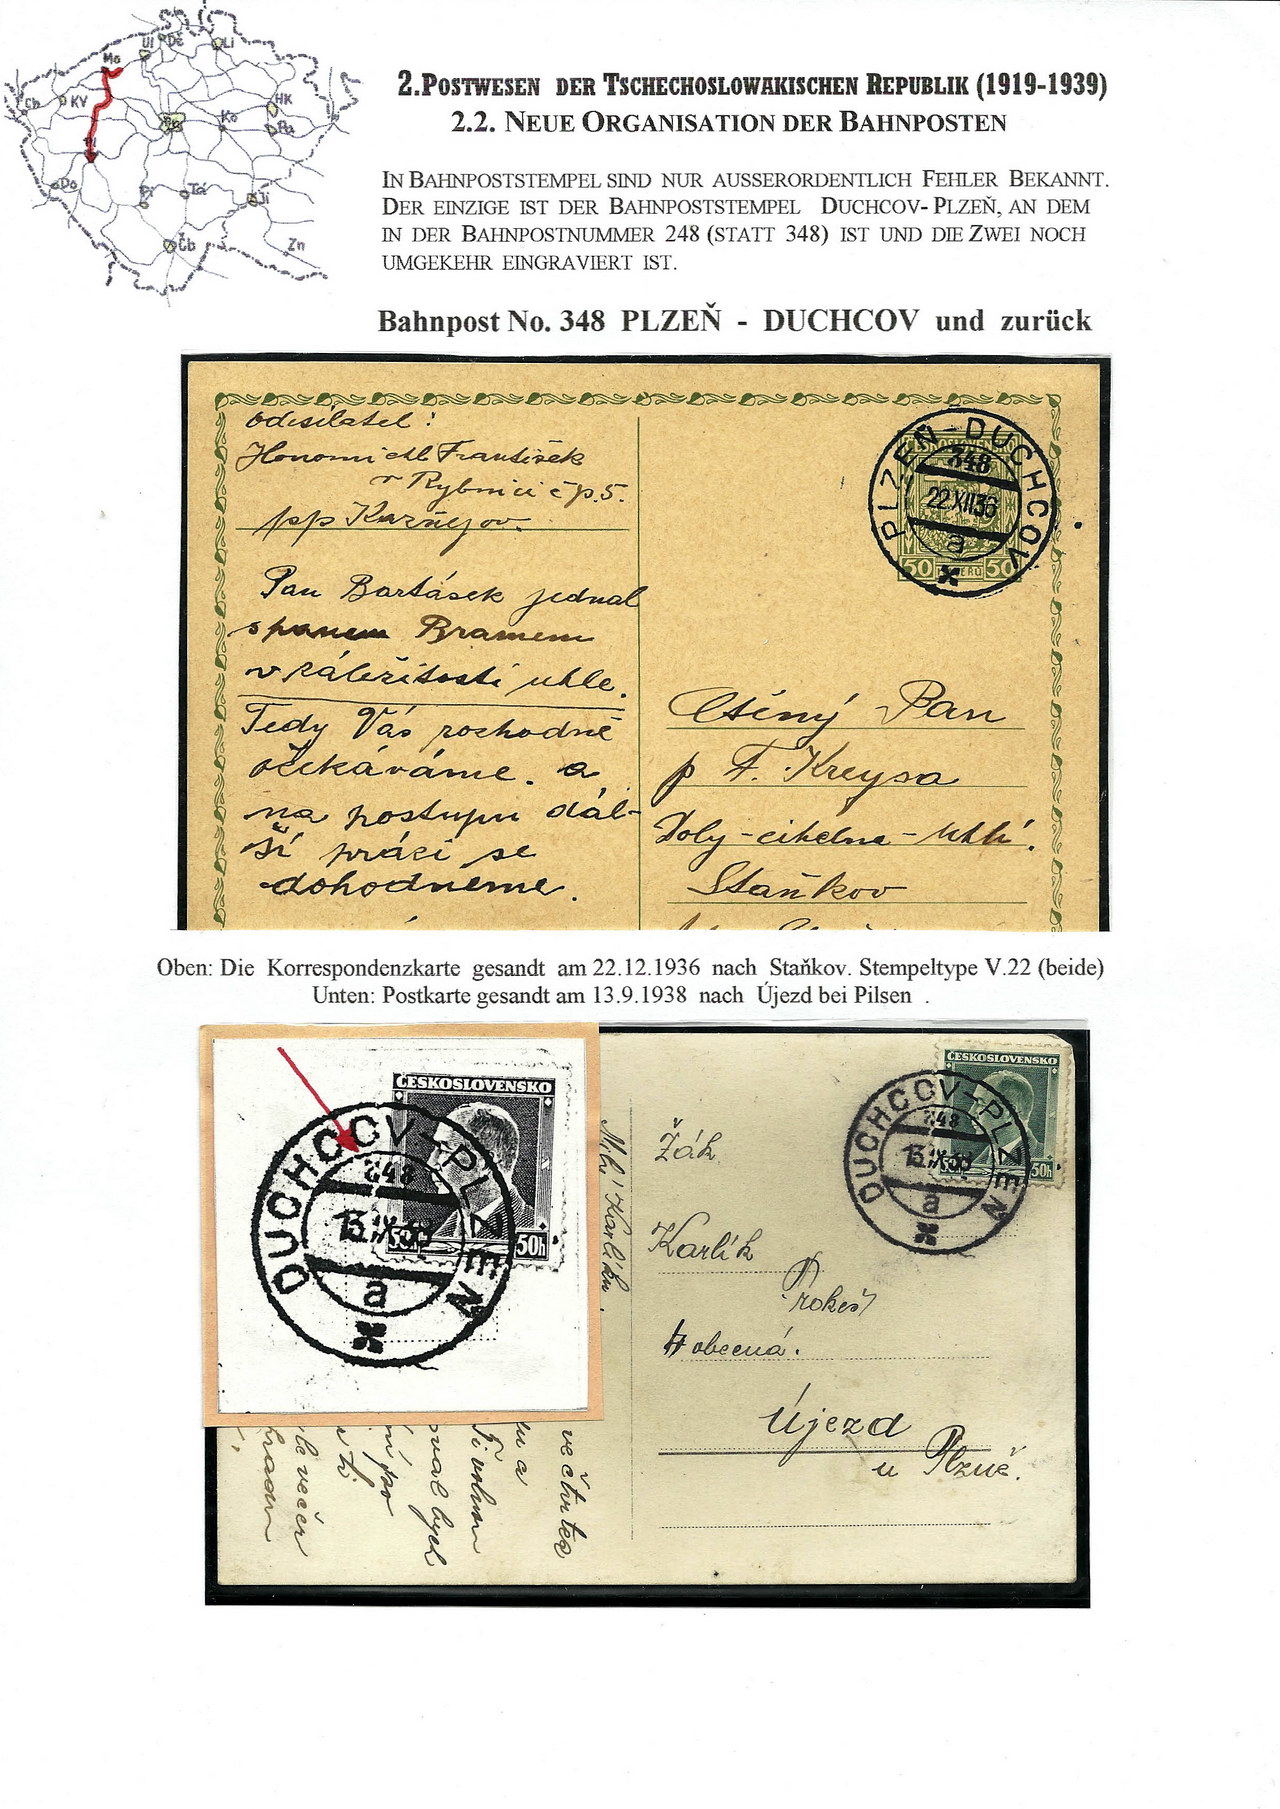 Mo
Ul
Dě
Li
Ch
KV
HK
Ko
Pa
Pl
Do
Pí
Tá
Jí
Čb
Zn
2.Postwesen der Tschechoslowakischen Republik (1919-1939)
2.2. Neue Organisation der Bahnposten
In Bahnpoststempel sind nur ausserordentlich Fehler Bekannt.
Der einzige ist der Bahnpoststempel Duchcov- Plzeň, an dem
in der Bahnpostnummer 248 (statt 348) ist und die Zwei noch
umgekehr eingraviert ist.
Bahnpost No. 348 PLZEŇ - DUCHCOV und zurück
odesílatel:
František
v Rybnici čp. 5.
pp Kaznějov.
Pan Bartásek jednal
s panem Bramem
v záležitosti uhle.
Tedy Vás rozhodně
očekáváme. a
na postupu dál-
ší práci se
dohodneme.
PLZEŇ-DUCHCOV
348
22.XII.36
a
ČESKOSLOVENSKO
50 HALÉŘŮ 50
Ctěný Pan
p F. Kreysa
Doly-cihelna-Uhlí.
Staňkov
Oben: Die Korrespondenzkarte gesandt am 22.12.1936 nach Staňkov. Stempeltype V.22 (beide)
Unten: Postkarte gesandt am 13.9.1938 nach Újezd bei Pilsen .
ČESKOSLOVENSKO
50h
50h
DUCHCOV-PLZEŇ
348
13.IX.38
a
Milý Karlíku,
ČESKOSLOVENSKO
50h
DUCHCOV-PLZEŇ
348
13.IX.38
a
Žák
Karlík
Prokeš
4 obecná.
Újezd
u Plzně.
ve čtvrtek
oval bych
le večer